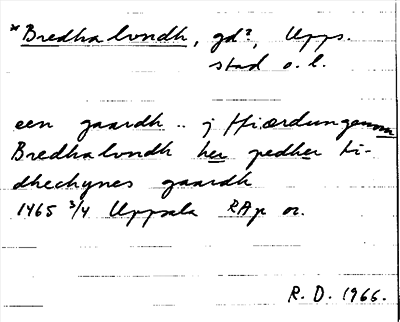 *Bredhalundh, gd?, Upps.
stad o. l.
een gaardh .. j Hiærdungenom
Bredhalundh her pedher ti-
dhechynes gaardh
1465 3/4 Uppsala RAp or.
R. D. 1966.